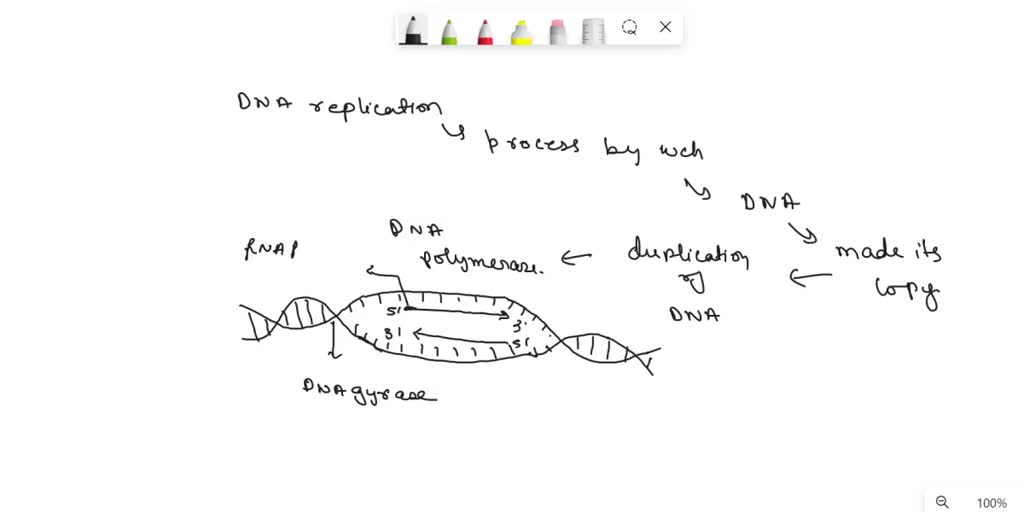 DNA replication
process by wch
DNA
made its
copy
duplication
of
DNA
DNA
polymerase.
RNAP
5'
3'
3'
5'
DNA gyrase
100%